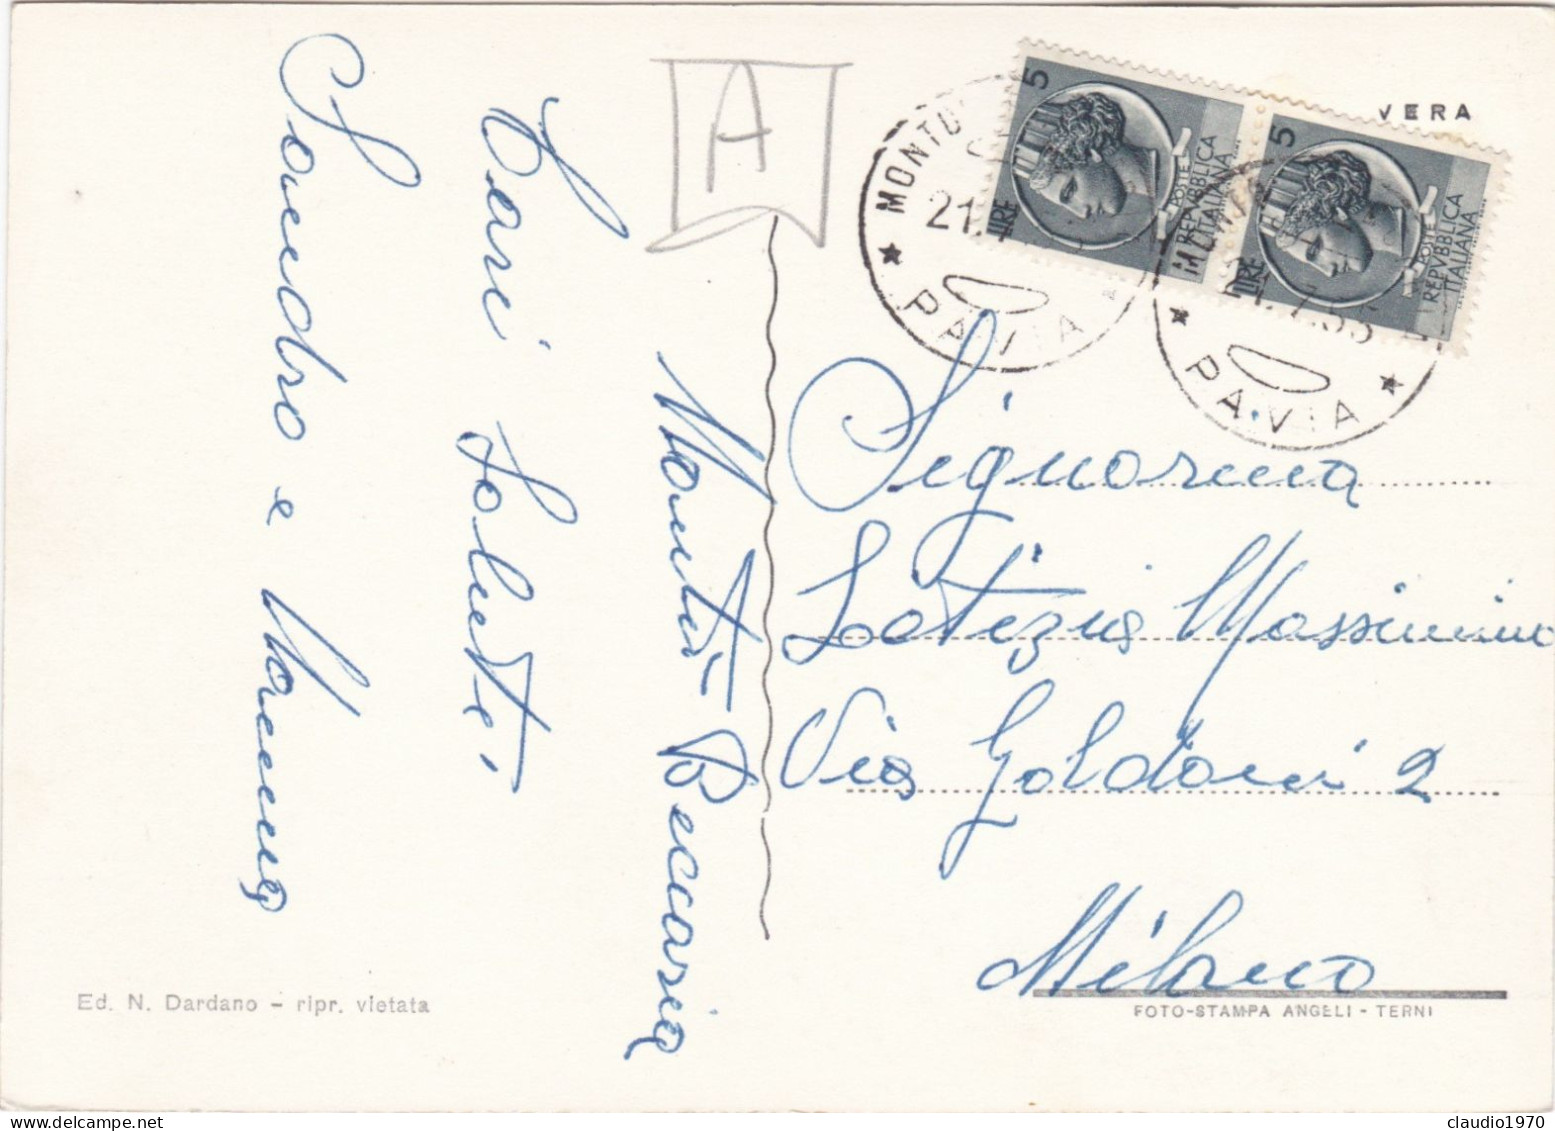 Montù Beccaria
Cari saluti
Sandro e
A
VERA
5
LIRE
POSTE
REPVBBLICA
ITALIANA
5
LIRE
POSTE
REPVBBLICA
ITALIANA
21.
PAVIA
21.7.55
PAVIA
Signorina
Letizia Massimino
Via Goldoni 2
Milano
Ed. N. Dardano - ripr. vietata
FOTO-STAMPA ANGELI - TERNI
claudio1970